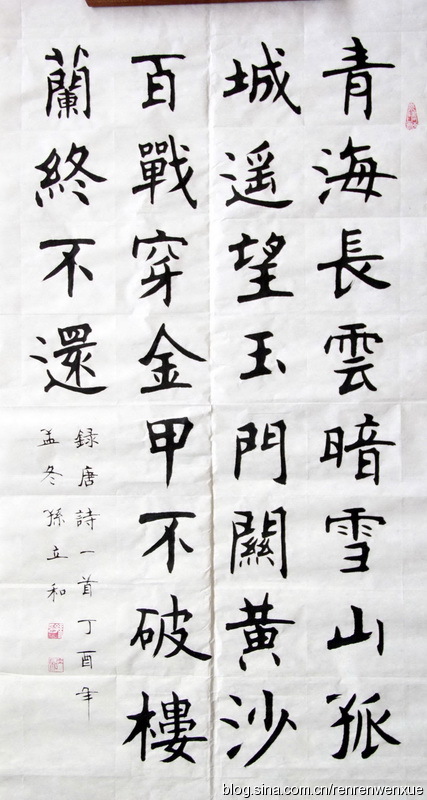 青海長雲暗雪山孤
城遥望玉門關黃沙
百戰穿金甲不破樓
蘭終不還
録唐詩一首丁酉年
孟冬孫立和
blog.sina.com.cn/renrenwenxue